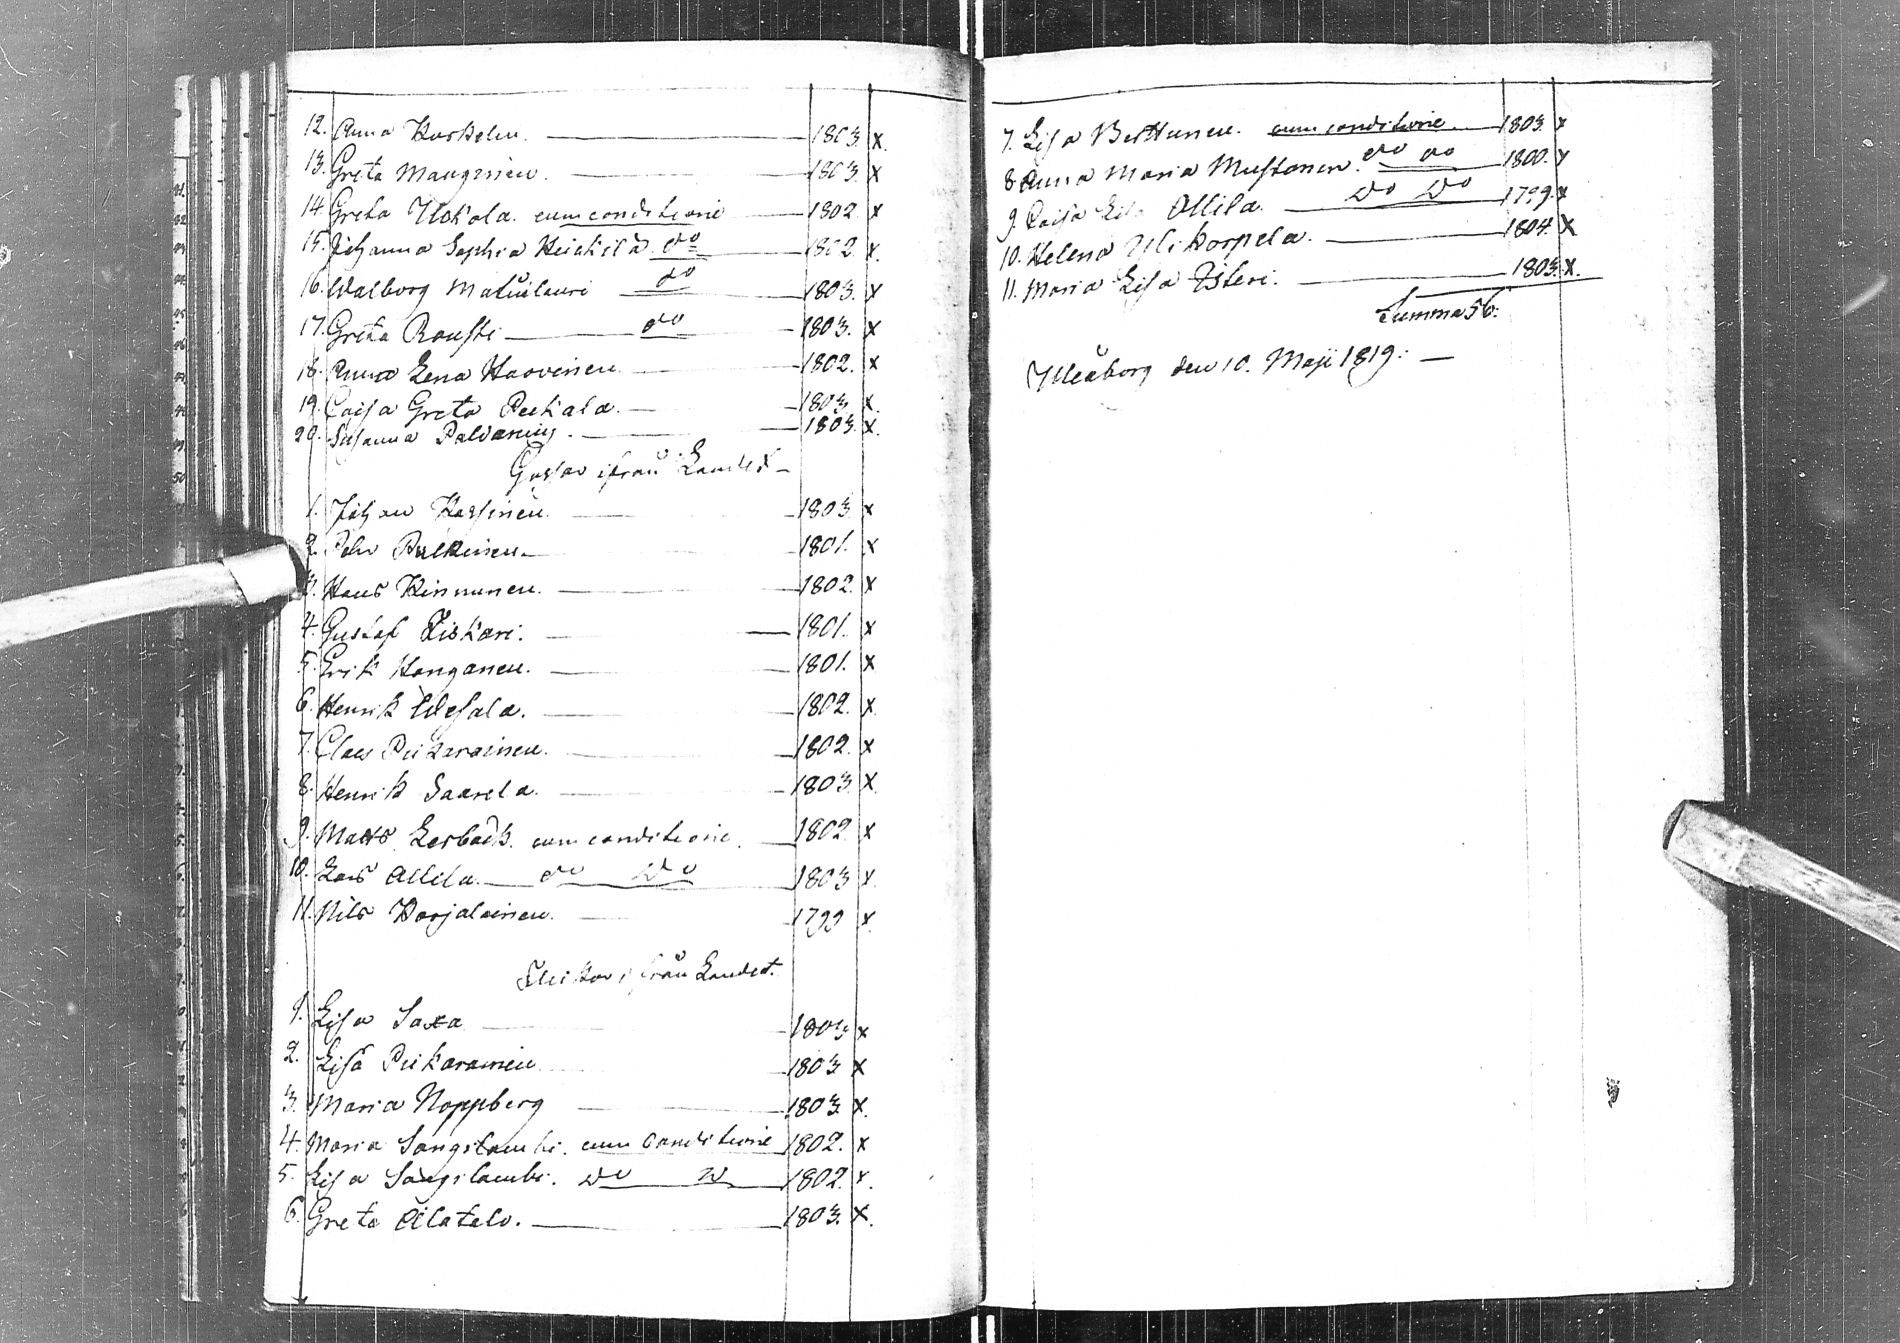 12. Anna Karhelin. 1803. x
13. Greta Manginen. 1803. x
14. Greta Uckola. cum conditione 1802 x
15. Johanna Sophia Heickilä do 1802 x.
16. Walborg Matinlauri do 1803. x
17. Greta Rousti do 1803. x
18. Anna Lena Haovinen 1802. x
19. Caisa Greta Peckala. 1803. x.
20. Susanna Paldanius. 1803. x.
Gossar ifrån Landet
1. Johan Karjinen. 1803. x
2. Pehr Pulkinen 1801. x
3. Hans Kinnunen. 1802. x
4. Gustaf Liskari. 1801. x
5. Erik Kanganen. 1801. x
6. Henrik Wesala. 1802. x
7. Claes Pickarainen. 1802. x
8. Henrik Saarela. 1803. x
9. Matts Lerbäck. cum conditione. 1802. x
10. Lars Attila. do do 1803 x
11. Nils Karjalainen. 1799 x
Flickor ifrån Landet.
1. Lisa Saxa 1803 x
2. Lisa Pickarainen 1803 x
3. Maria Noppberg 1803. x.
4. Maria Sangilambi. cum Conditione 1802. x
5. Lisa Sangilambi. do do 1802. x.
6. Greta Alatalo. 1803. x.
7. Lisa Berttunen. cum conditione. 1803. x
8. Anna Maria Mustonen. do do 1800. x
9. Caisa Lisa Attila. do do 1799. x
10. Helena Ylikorpela. 1804. x
11. Maria Lisa Isteri. 1803. x.
Summa 56.
Uleåborg den 10. Maji 1819.